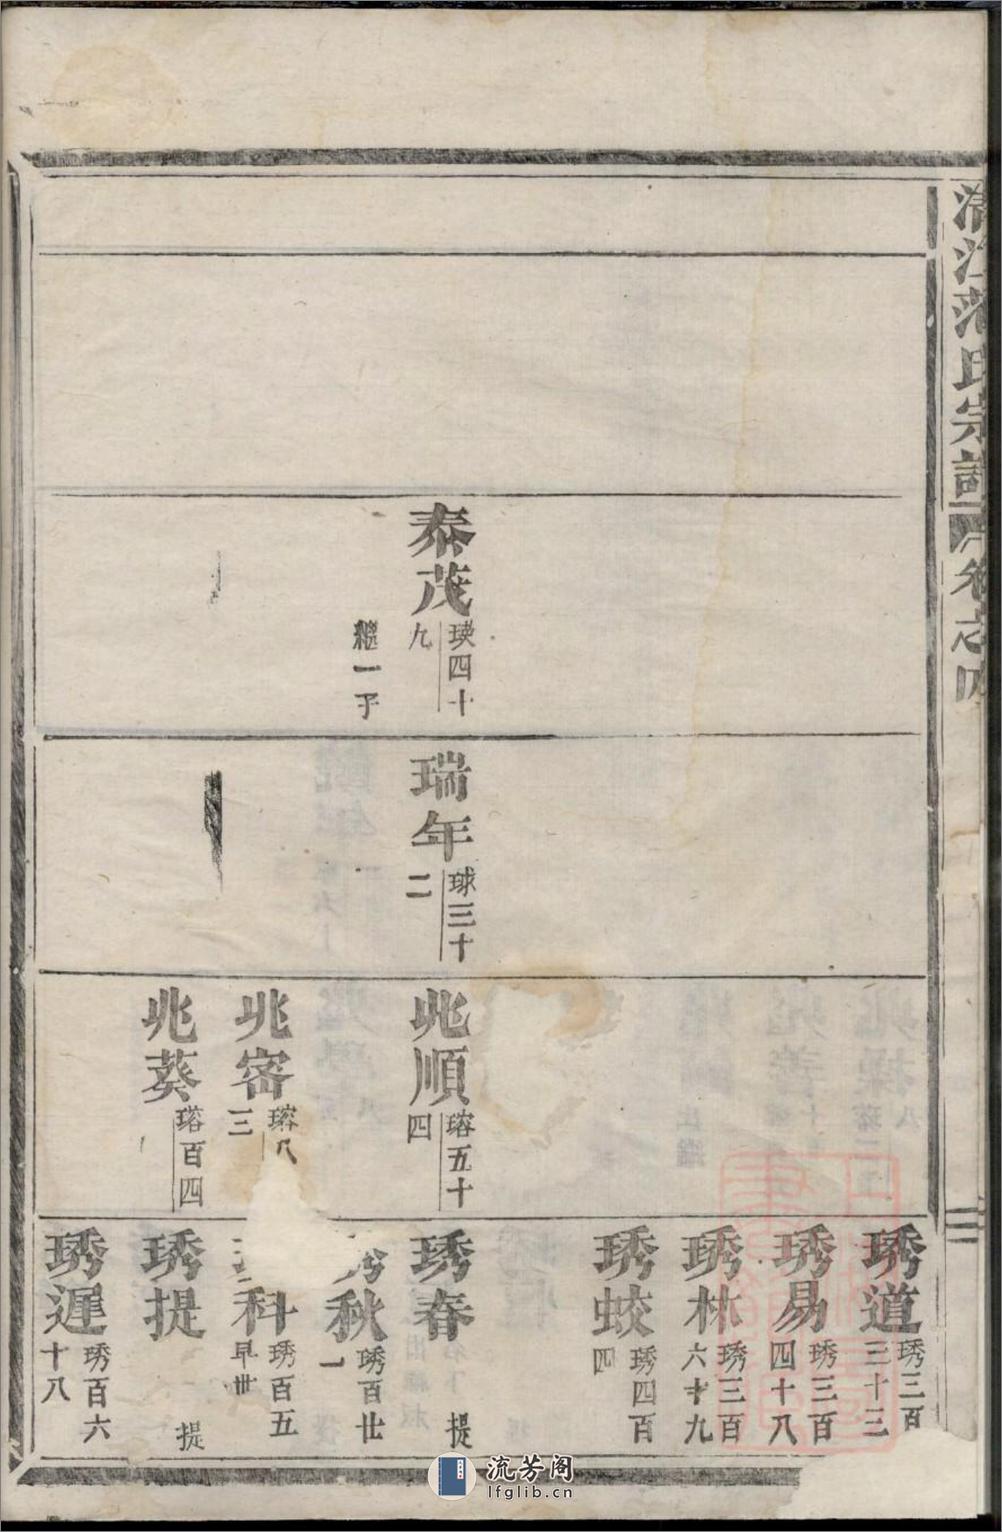 清江范氏宗譜 卷之四
泰茂 瑛四十九
繼一子
瑞年 球三十二
兆順 瑢五十四
兆密 瑢八 三
兆葵 瑢百四
琇道 琇三百三十三
琇易 琇三百四十八
琇林 琇三百六十九
琇蛟 琇四百四
琇春 提
秋 琇百廿一
科 琇百五 早卅
琇提 提
琇遲 琇百六十八
流芳阁
lfglib.cn